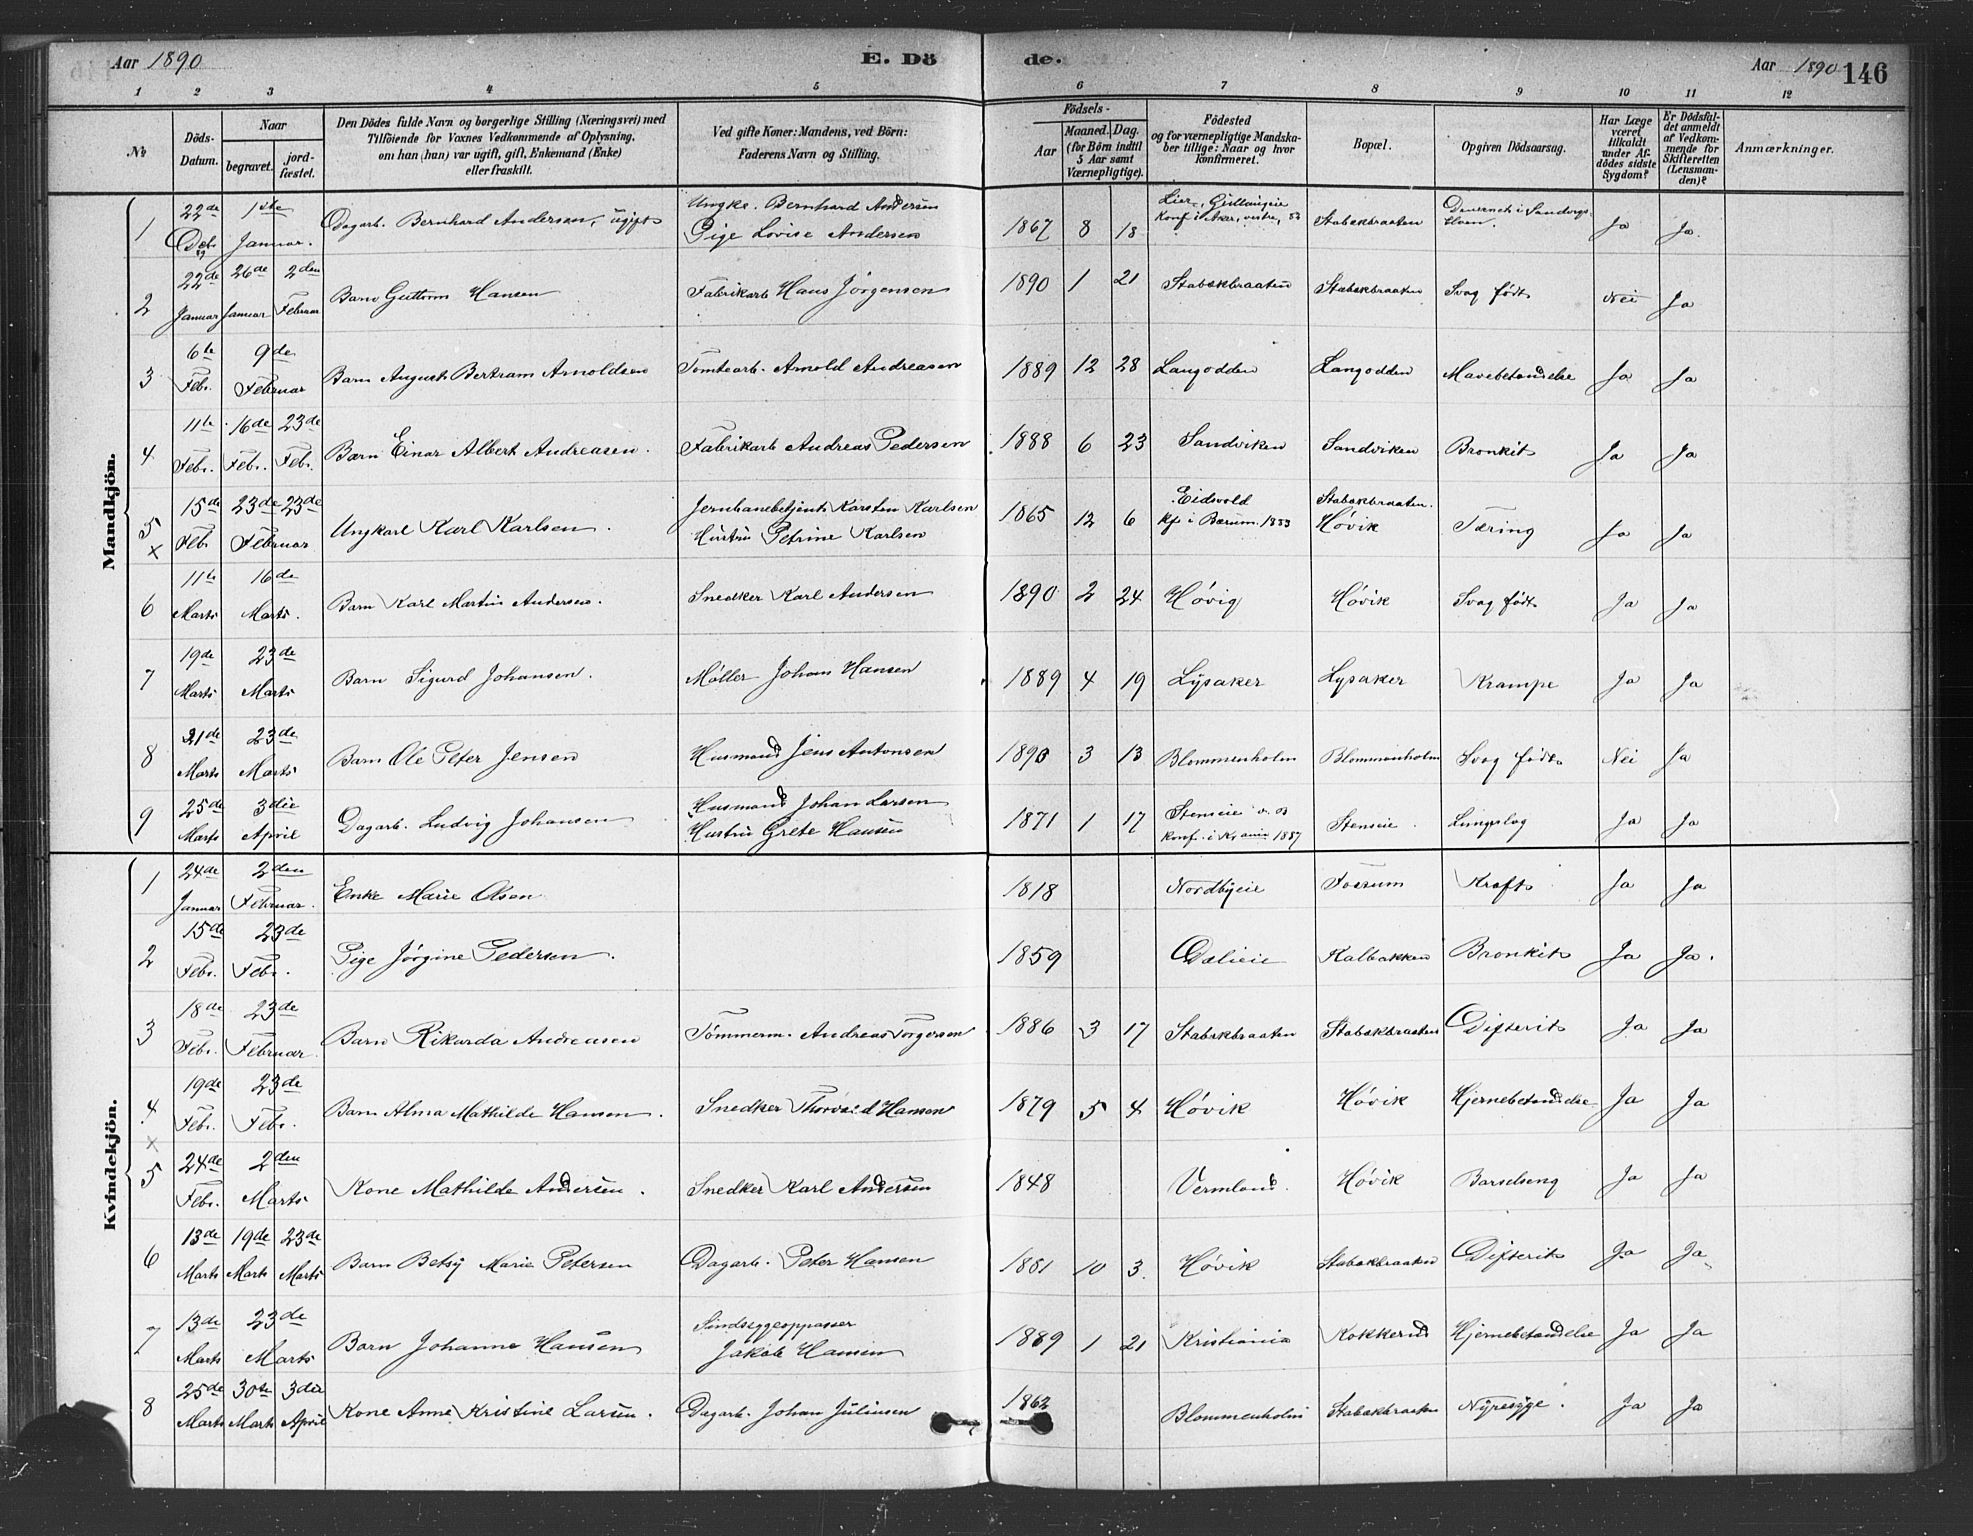 Aar 1890
E. Dö
de.
Aar 1890 146
1 2 3 4 5 6 7 8 9 10 11 12
No
Döds-Datum.
Naar
begravet.
jord-fæstet.
Den Dödes fulde Navn og borgerlige Stilling (Næringsvei) med
Tilföiende for Voxnes Vedkommende af Oplysning,
om han (hun) var ugift, gift, Enkemand (Enke)
eller fraskilt.
Ved gifte Koner: Mandens, ved Börn:
Faderens Navn og Stilling.
Födsels-
Aar
Maaned. Dag.
(for Börn indtil
5 Aar samt
Værnepligtige).
Födested
og for værnepligtige Mandska-
ber tillige: Naar og hvor
konfirmeret.
Bopæl.
Opgiven Dödsaarsag.
Har Læge
været
tilkaldt
under Af-
dödes sidste
Sygdom?
Er Dödsfal-
det anmeldt
af Vedkom-
mende for
Skifteretten
(Lensman-
den)?
Anmærkninger.
Mandkjön.
1 22de Dcbr. 89 1ste Januar. Dagarb. Bernhard Andersen, ugift Ungk. Bernhard Andersen
Pige Lovise Andersen 1867 8 18 Lier,
Konf. i Aker, vestre, 83 Stabækbraaten Ja Ja.
2 22de Januar 26de Januar 2den Februar Barn Guttorm Hansen Fabrikarb Hans Jörgensen 1890 1 21 Stabækbraaten Stabækbraaten Svag födt Nei Ja
3 6te Febr. 9de Februar Barn August Bertram Arnoldsen Tomtearb. Arnold Andreasen 1889 12 28 Langodden Langodden Mavebetændelse Ja Ja
4 11te Febr. 16de Febr. 23de Febr. Barn Einar Albert Andreasen. Fabrikarb Andreas Pedersen 1888 6 23 Sandviken Sandviken Bronkit Ja Ja
5 × 15de Febr 23de 23de Februar Ungkarl Karl Karlsen. Jernbanebetjent Karsten Karlsen
Hustru Petrine Karlsen 1865 12 6 Eidsvold
Kf. i Bærum 1883 Stabækbraaten.
Høvik Tæring Ja Ja
6 11te Marts 16de Marts. Barn Karl Martin Andersen. Snedker Karl Andersen 1890 2 24 Høvig Høvik Svag födt Ja Ja
7 19de Marts 23de Marts Barn Sigurd Johansen. Møller Johan Hansen 1889 4 19 Lysaker Lysaker Krampe Ja Ja
8 21de Marts 23de Marts Barn Ole Peter Jensen Husmand Jens Antonsen 1890 3 13 Blommenholm Blommenholm Svag födt Nei Ja
9 25de Marts 3die April Dagarb. Ludvig Johansen Husmand Johan Larsen
Hustru Grete Hansen 1871 1 17 Stenseie
Konf. i 1887 Stenseie. Lungeslag Ja Ja
Kvindekjön.
1 24de Januar 2den Februar. Enke Marie Olsen 1818 Nordbyeie Fossum Kræft Ja Ja
2 15de Febr. 23de Febr. Pige Jörgine Pedersen. 1859 Dælieie Kalbakken Bronkit Ja Ja.
3 18de Febr. 23de Februar Barn Rikarda Andreasen Tömmerm. Andreas Torgersen 1886 3 17 Stabækbraaten Stabækbraaten Difterit Ja Ja
4 × 19de Febr. 23de Febr. Barn Alma Mathilde Hansen. Snedker Thorvald Hansen 1879 5 4 Høvik Høvik Hjernebetændelse Ja Ja
5 24de Febr. 2den Marts Kone Mathilde Andersen. Snedker Karl Andersen 1848 Vermland. Høvik Barselseng Ja Ja
6 13de Marts 19de Marts 23de Marts Barn Betsy Marie Petersen Dagarb. Peter Hansen 1881 10 3. Høvik Stabækbraaten Difterit Ja Ja
7 13de Marts 23de Marts Barn Johanne Hansen Sindssygeopasser
Jakob Hansen 1889 1 21 Kristiania Kokkerud Hjernebetændelse Ja Ja
8 25de Marts 30te Marts 3die April Kone Anne Kristine Larsen. Dagarb. Johan Julinsen 1862 Blommenholm Stabækbraaten Nyresyge. Ja Ja